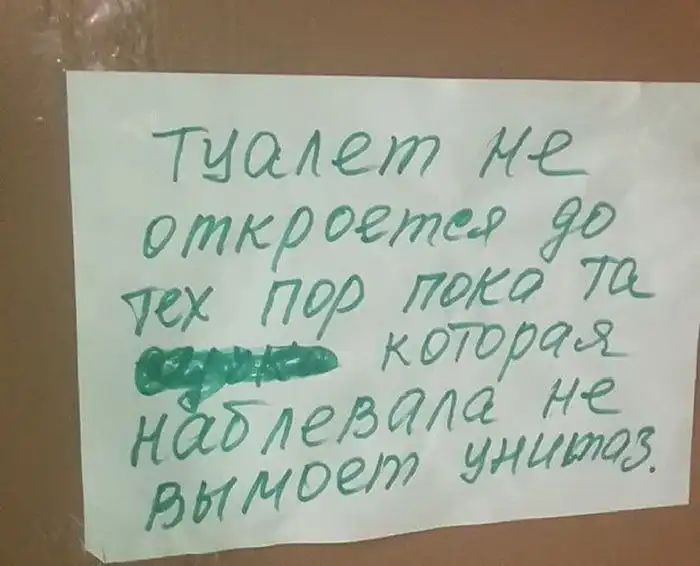 Туалет не
откроется до
тех пор пока та
которая
наблевала не
вымоет унитаз.